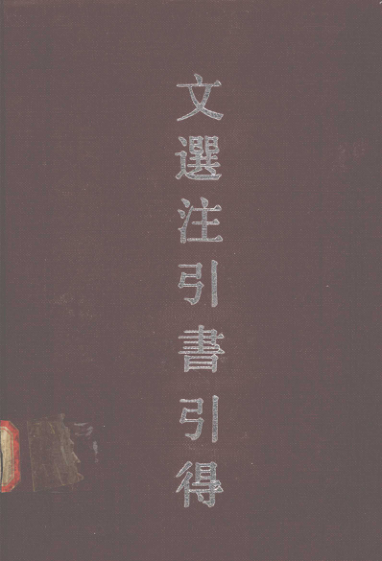 文選注引書引得